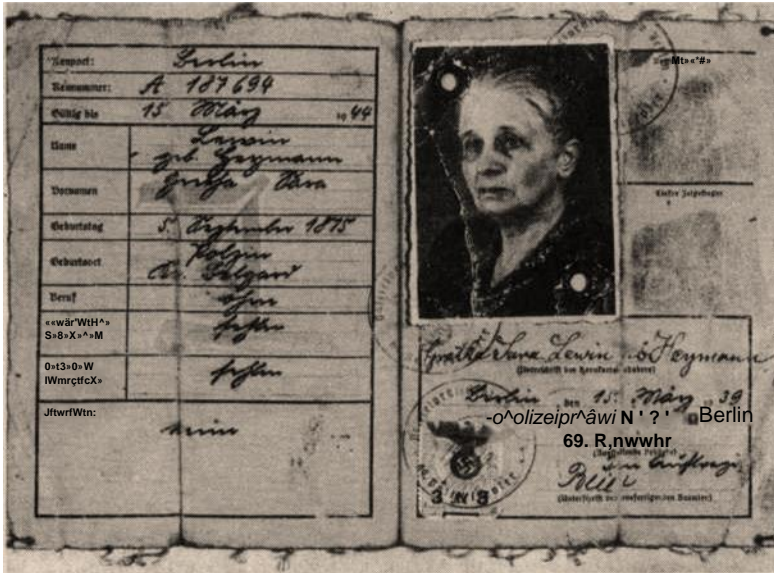 Kennort: Berlin
Kennummer: A 187694
Gültig bis 15 März 1944
Name Lewin
geb. Heymann
Vornamen Gretha Sara
Geburtstag 5. September 1875
Geburtsort Polzin
Kr. Belgard
Beruf ohne
««wär'WtH^»
S»8»X»^»M
fehlen
0»t3»0»W
IWmrçtfcX»
fehlen
JftwrfWtn:
keine
Mt»«*#»
Linker Zeigefinger
Gretha Sara Lewin Heymann
(Unterschrift des Kennkarteninhabers)
Berlin den 15. März 1939
-o^olizeipr^âwi N ' ? ' Berlin
69. R,nwwhr
(Ausstellende Behörde)
Im Auftrage
(Unterschrift des ausfertigenden Beamten)